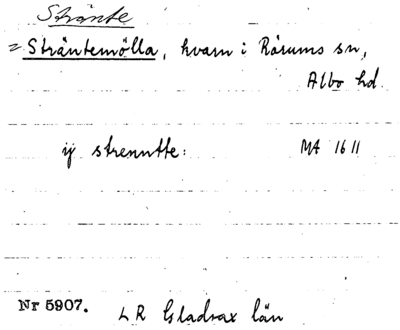 Stränte
= Sträntemölla, kvarn i Rörums sn,
Albo hd.
ij strenntte: MA 1611
Nr 5907. LR Gladsax län